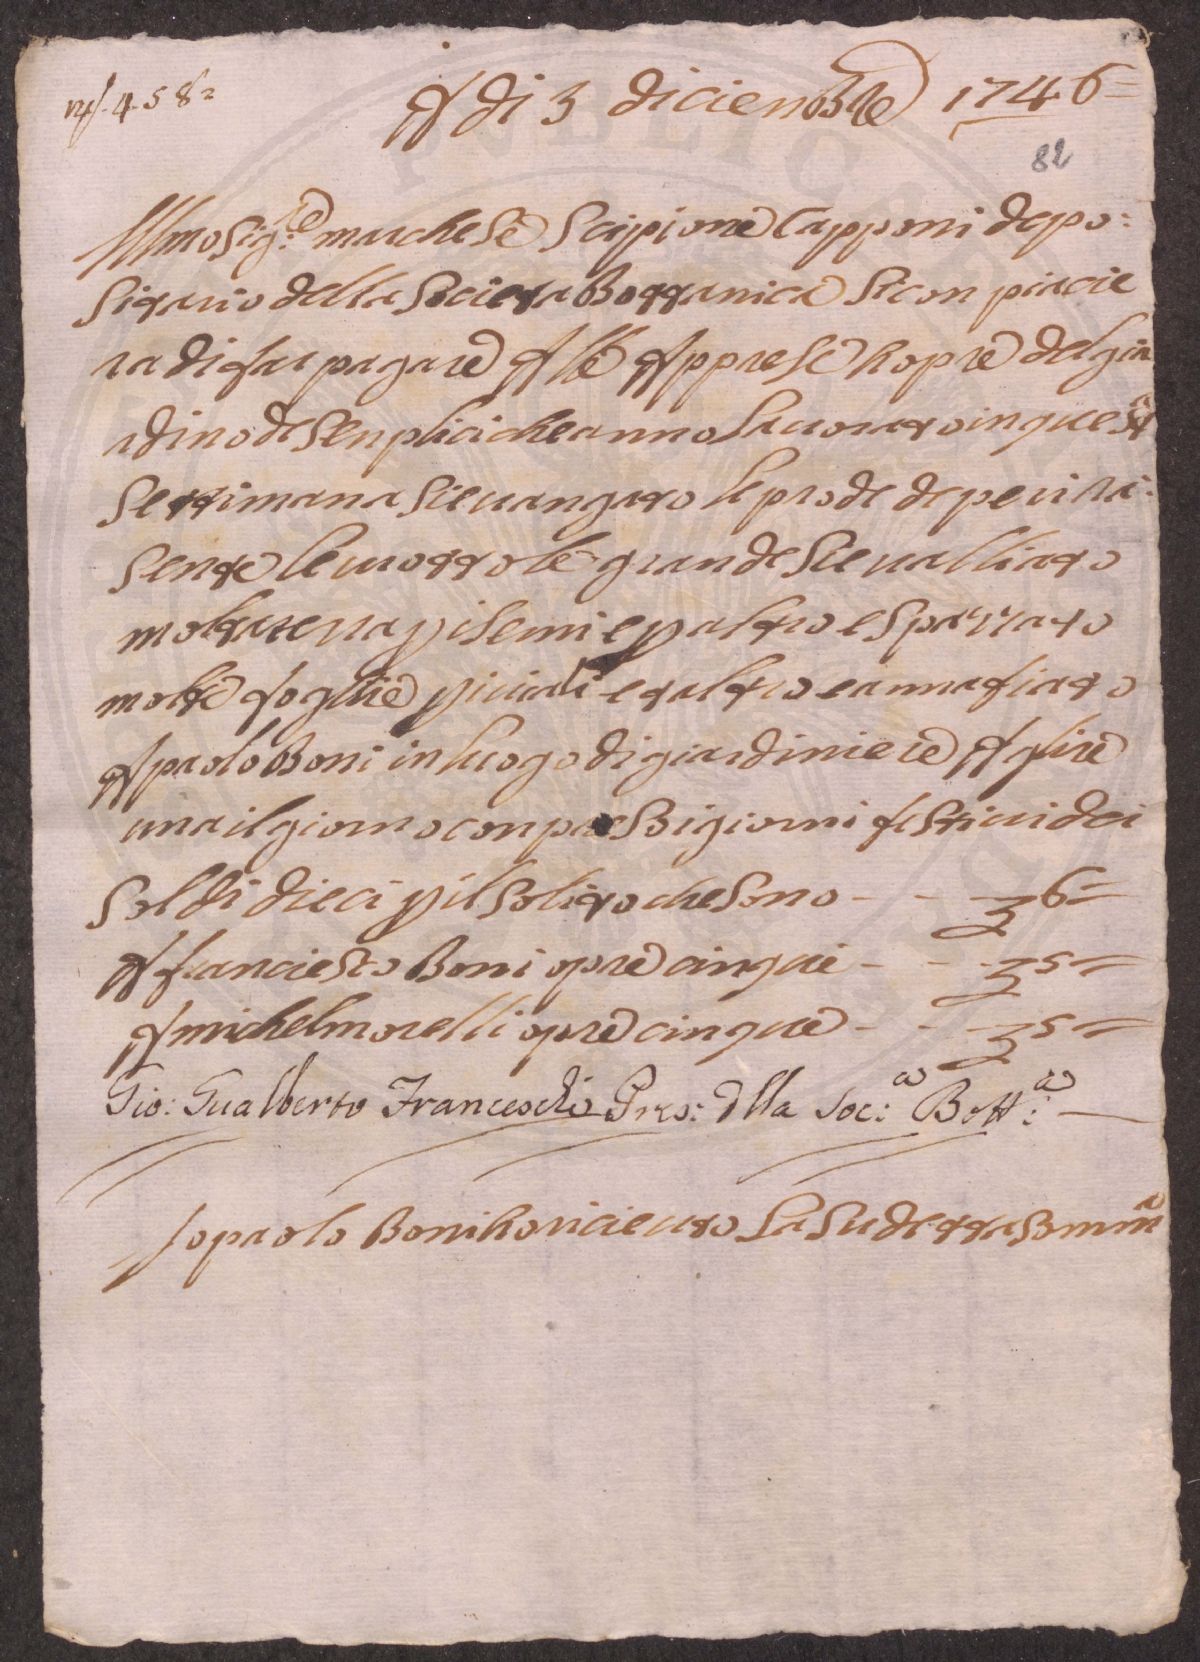 N.° 458=
A di 3 dicienbre 1746=
82
Illmo Sig:re marchese Scipione Capponi depo:
sitario della Societa Bottanica si conpiacie
ra di far pagare alle apprese hopre del giar
dino de Senplici che anno lavorato in questa
settimana si e vangato le prode
sente le grande si e valliato
molta terra p i semi e p altro e spazzato
molte foglie p i viali e altro e annafiato
A paolo Boni in luogo di giardiniere A lire
una il giorno conpreso i giorni festivi dei
soldi dieci p il solito che sono - - - £ 6=
A franciesco Boni opre cinque - - - £ 5=
A michel morelli opre cinque - - - £ 5=
Gio: Gualberto Franceschi Pres: dlla Soc:a Bott:a
Io paolo Boni ho ricieuto la su detta somma